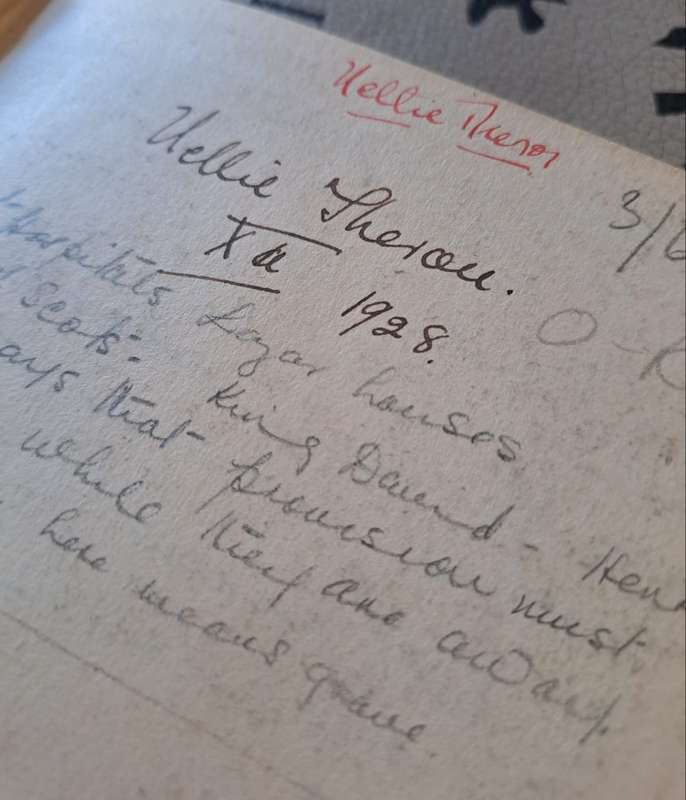 Nellie Theron
Nellie Theron.
Xa 1928.
3/6
Hospitals Lazar houses
Scots. King David - Hen
ays that provision must
while they are away.
here means grave.